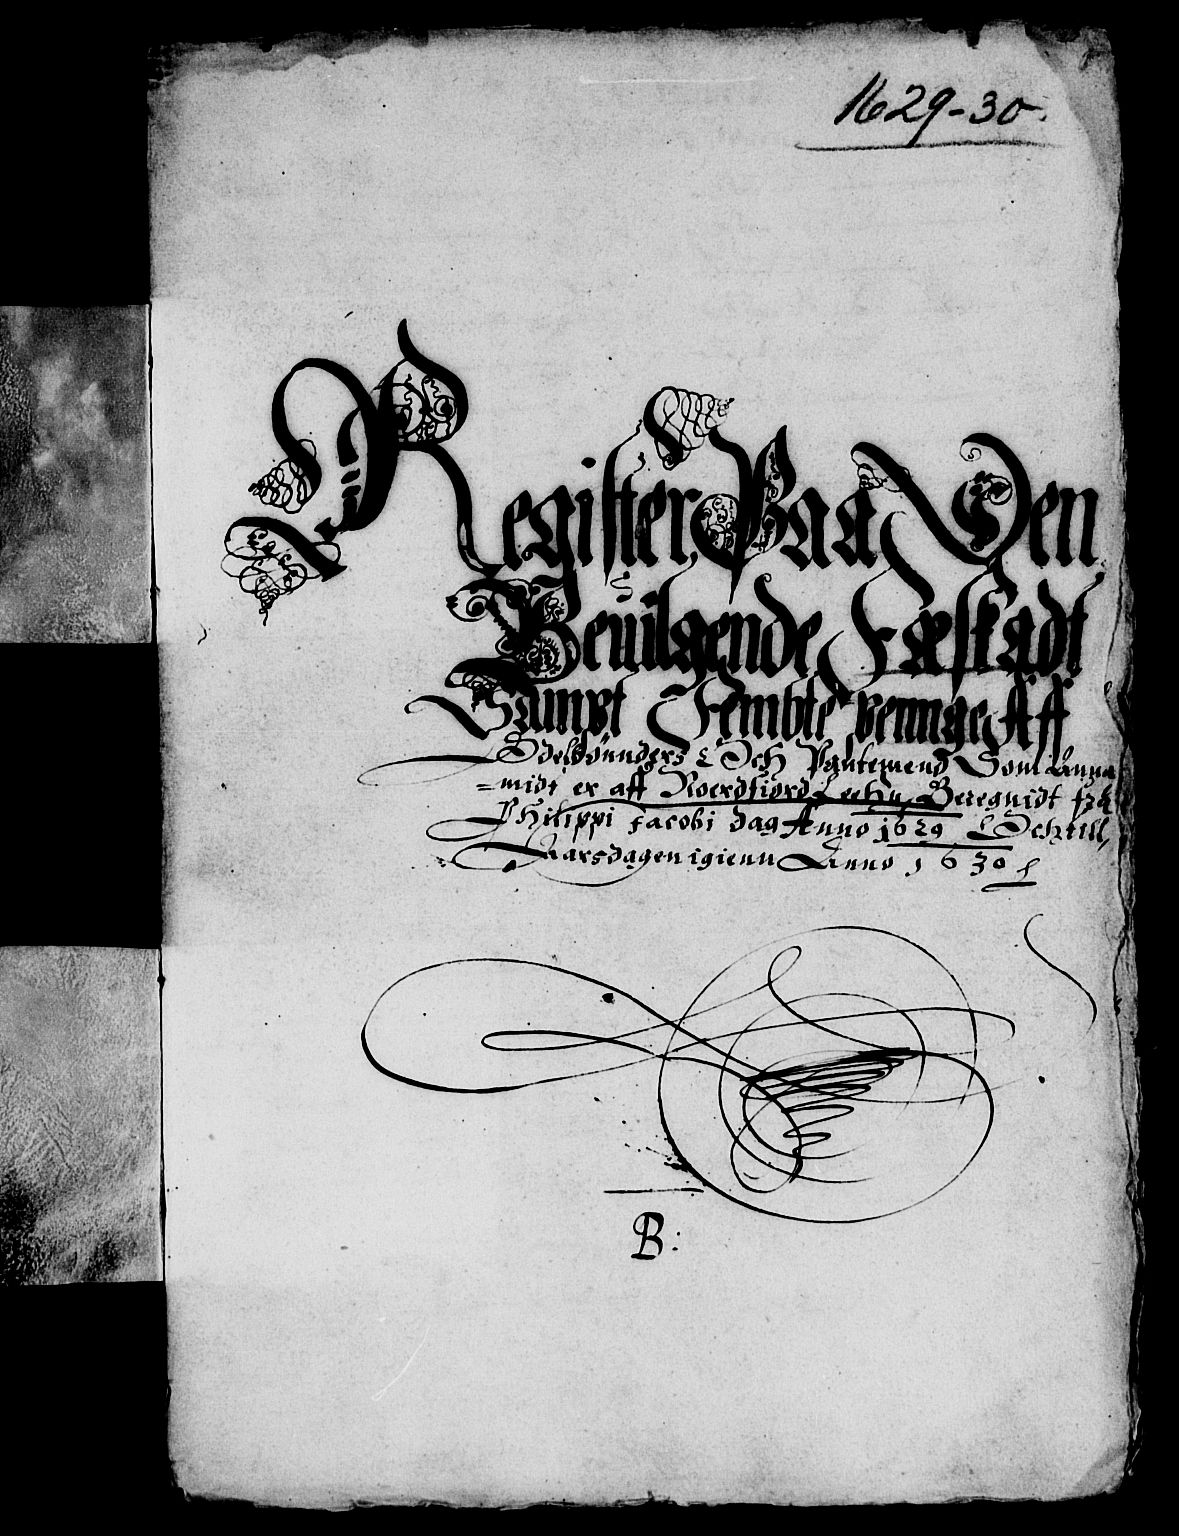 1629-30.
Register Paa Den
Beuilgende Fæskadt
Sampt Fembte penngeAff
Odelbønnders Och Panteiend Som Anna
=midt er aff Noerdfiord Lehn, Beregnidt fra
Philippi Jacobi dag Anno 1629 Och till,
Aarsdagen igienn Anno 1630
B: